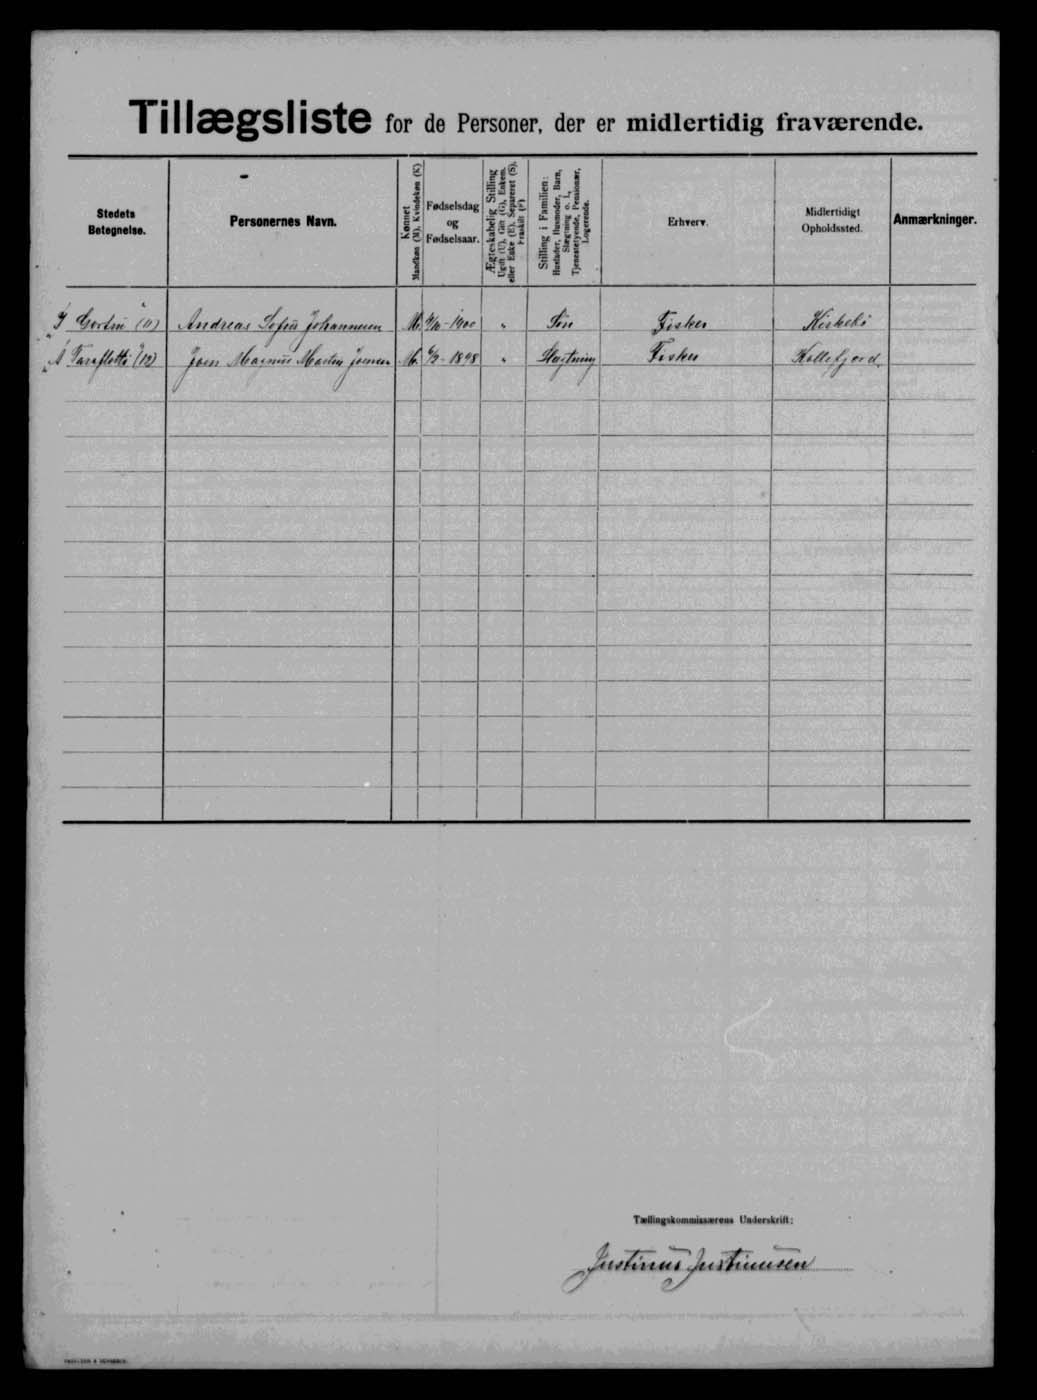 Tillægsliste for de Personer, der er midlertidig fraværende.
Stedets Betegnelse.
Personernes Navn.
Kønnet
Mandkøn (M), Kvindekøn (K)
Fødselsdag og Fødselsaar.
Ægteskabelig Stilling
Ugift (U), Gift (G), Enkem. eller Enke (E), Separeret (S), Fraskilt (F)
Stilling i Familien:
Husfader, Husmoder, Barn, Slægtning o. l., Tjenestetyende, Pensionær, Logerende.
Erhverv.
Midlertidigt Opholdssted.
Anmærkninger.
(11) Andreas Sofus Johannesen M. 1900 " Søn Fisker Kirkebø
(12) Joen Magnus Martin Joensen M. 1898 " Slægtning Fisker Kollefjord.
Tællingskommissærens Underskrift:
Justinus Justinussen